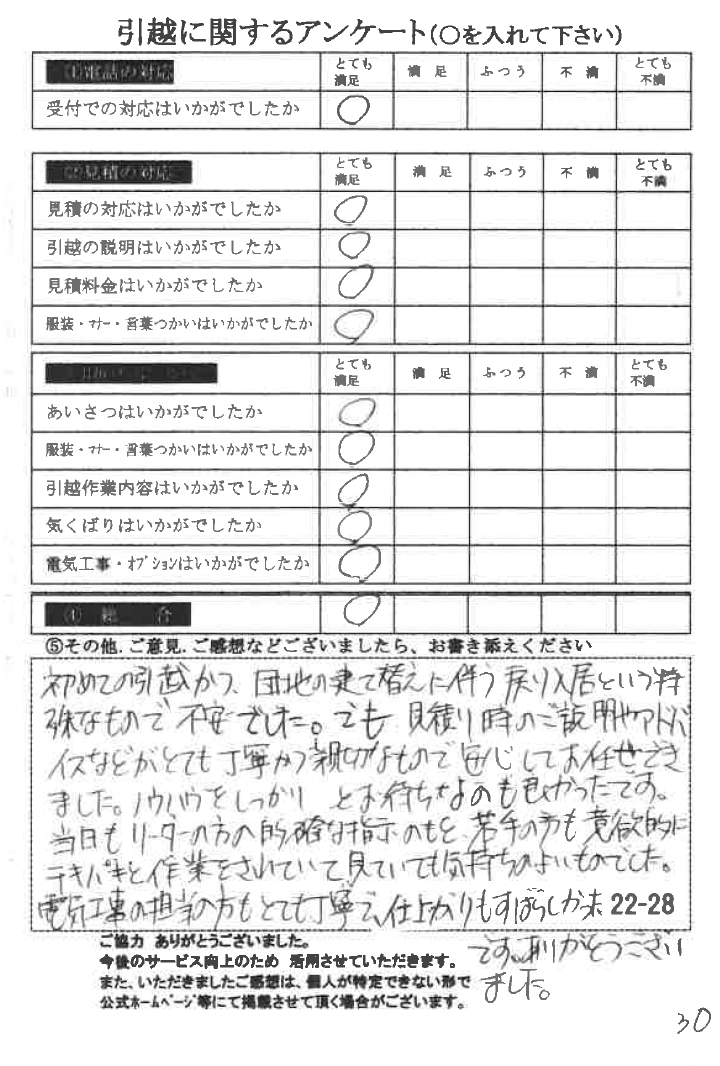 引越に関するアンケート(○を入れて下さい)
①電話の対応 とても満足 満足 ふつう 不満 とても不満
受付での対応はいかがでしたか ○
②見積の対応 とても満足 満足 ふつう 不満 とても不満
見積の対応はいかがでしたか ○
引越の説明はいかがでしたか ○
見積料金はいかがでしたか ○
服装・マナー・言葉つかいはいかがでしたか ○
とても満足 満足 ふつう 不満 とても不満
あいさつはいかがでしたか ○
服装・マナー・言葉つかいはいかがでしたか ○
引越作業内容はいかがでしたか ○
気くばりはいかがでしたか ○
電気工事・オプションはいかがでしたか ○
④総合 ○
⑤その他.ご意見.ご感想などございましたら、お書き添えください
初めての引越かつ、団地の建て替えに伴う戻り入居という特
殊なもので不安でした。でも、見積り時のご説明やアドバ
イスなどがとても丁寧かつ親切なもので安心してお任せでき
ました。ノウハウをしっかり とお持ちなのも良かったです。
当日もリーダーの方の的確な指示のもと、若手の方も意欲的に
テキパキと作業をされていて見ていても気持ちのよいものでした。
電気工事の担当の方もとても丁寧で、仕上がりもすばらしかった 22-28
です。ありがとうござい
ました。
ご協力 ありがとうございました。
今後のサービス向上のため 活用させていただきます。
また、いただきましたご感想は、個人が特定できない形で
公式ホームページ等にて掲載させて頂く場合がございます。
30